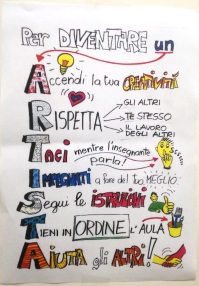 PER DIVENTARE un
Accendi la tua CREATIVITÀ
GLI ALTRI
RISPETTA TE STESSO
IL LAVORO
DEGLI ALTRI
Taci mentre l'insegnante
parla!
IMPEGNATI a fare del tuo MEGLIO
Segui le ISTRUZIONI
TIENI IN ORDINE L'AULA
AIUTA gli ALTRI!